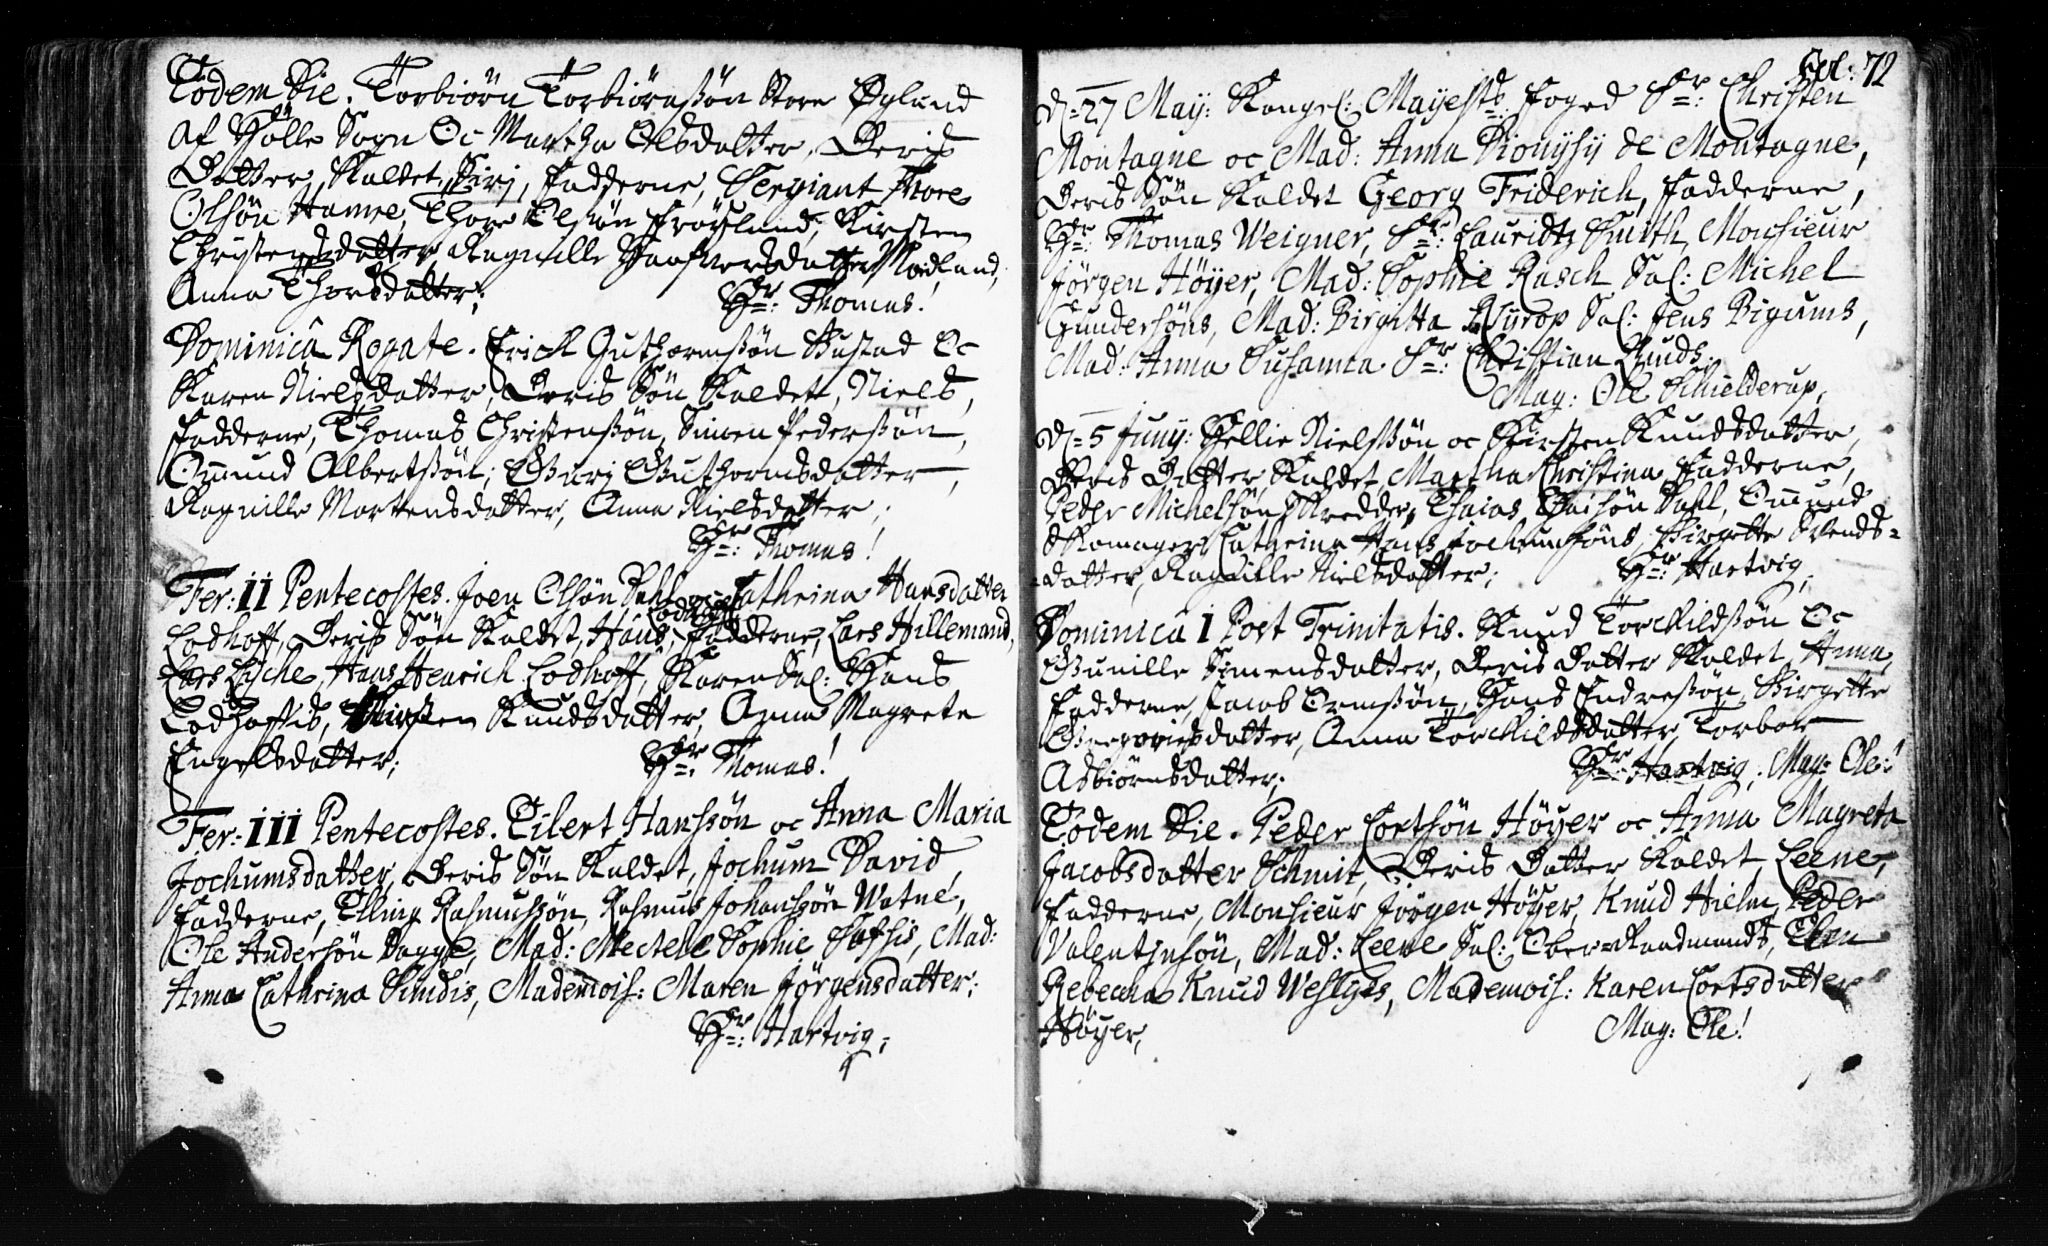 Eodem Die. Torbiörn Torbiörnsßön Store Øgland
af Høile Sogn Oc Martha Olsdatter, Deris
Datter, Kaldet, Sirj, Fadderne, Sergiant Thore
Olsøn Hamre, Thore Olsøn Frøysland, Kirsten
Christensdatter, Ragnille Haafversdatter Modland,
Anna Thorsdatter; Hr: Thomas!
Dominicâ Rogate. Erich Guthormsßön Bustad Oc
Karen Nielsdatter, Deris Søn Kaldet, Niels,
Fadderne, Thomas Christensßön, Simen Pedersßön,
Omund Albertsßön, Gurj Guthormsdatter,
Ragnille Mortensdatter, Anna Nielsdatter;
Hr: Thomas!
Fer: II Pentecostes. Joen Olsøn Dahl oc Cathrina Hansdatter
Lodhoff, Deris Søn Kaldet, Hans Lodhoff, Fadderne, Lars Hillemand,
Lars Lyche, Hans Henrich Lodhoff, Karen Sal: Hans
Lodhoffis, Kirsten Knudsdatter, Anna Magrete
Engelsdatter; Hr: Thomas!
Fer: III Pentecostes. Eilert Hanssøn oc Anna Maria
Jochumsdatter, Deris Søn Kaldet, Jochum David,
Fadderne, Elling Rasmussøn, Rasmus Johanssøn Watne,
Ole Andersøn Dagge, Mad: Mectele Sophie, Mad:
Anna Cathrina Smidis, Mademois: Maren Jørgensdatter;
Hr: Hartvig;
Fol: 72
D. 27 May: Kongel: Mayesds. Foged Sr: Christen
Montagne oc Mad: Anna Dionysij de Montagne,
Deris Søn Kaldet Georg Friderich, Fadderne,
Hr: Thomas Weigner, Sr: Lauridtz Smith, Monsieur
Jørgen Høyer, Mad: Sophie Rasch Sal: Michel
Gundersøns, Mad: Birgitta Syrop Sal: Jens Bigums,
Mad: Anna Susanna Sr: Christian Lunds;
Mag: Ole Schielderup,
D. 5 Juny: Hellie Nielsßön oc Kirsten Knudsdatter,
Deris Datter, Kaldet Martha Christina, Fadderne,
Peder Michelsøn Skredder, Esaias Esaisøn Dahl, Omund
Skomager, Cathrina Hans Jochumsøns, Birgette Svends-
datter, Ragnille Nielsdatter; Hr: Hartvig,
Dominicâ I Post Trinitatis. Knud Torchildsßön Oc
Gunille Simensdatter, Deris Datter Kaldet, Anna,
Fadderne, Jacob Ormsßön, Hans Endresßön, Birgette
Gregoriusdatter, Anna Torchildsdatter, Torbor
Asbiørnsdatter; Hr: Hartvig; Mag: Ole!
Eodem Die. Peder Cortsøn Høyer oc Anna Magreta
Jacobsdatter Schmit, Deris Datter Kaldet, Leene,
Fadderne, Monsieur Jørgen Høyer, Knud Hielm, Peder
Valentinsøn, Mad: Leene Sal: Ober-Raadmands, Ellen
Rebecca Knud Weslyes, Mademois: Karen Cortsdatter
Høyer, Mag: Ole!